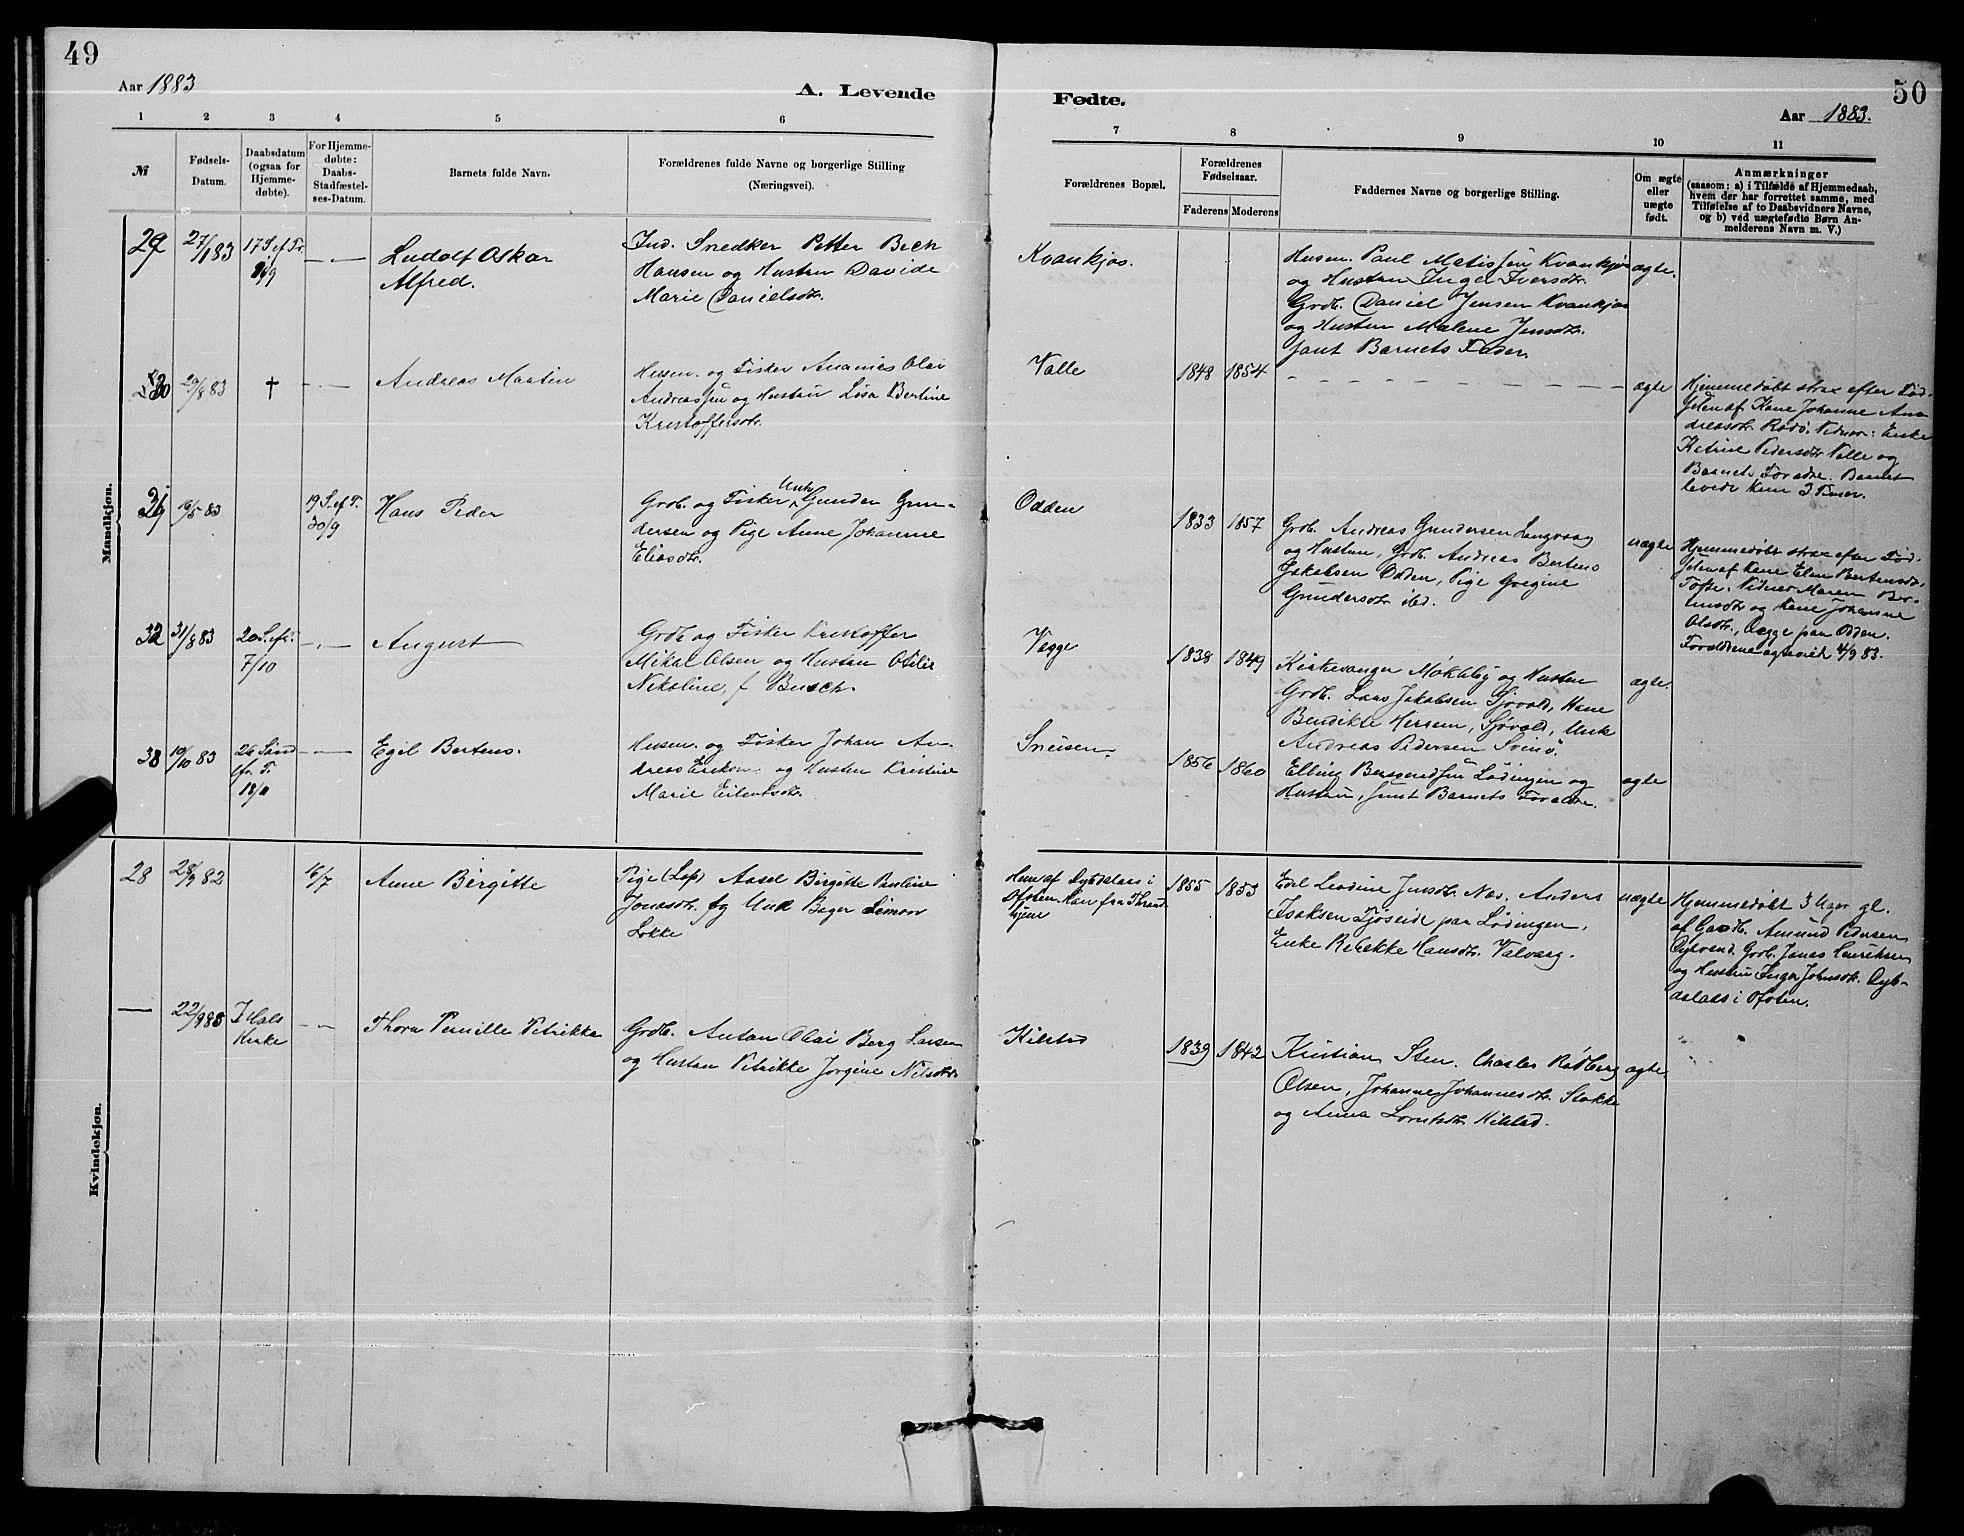 49
Aar 1883
A. Levende
1 2 3 4 5 6
№
Fødsels-
Datum.
Daabsdatum
(ogsaa for
Hjemme-
døbte).
For Hjemme-
døbte:
Daabs-
Stadfæstel-
ses-Datum.
Barnets fulde Navn.
Forældrenes fulde Navne og borgerlige Stilling
(Næringsvei).
Mandkjøn.
29
27/1 83
17 S. ef Tr.
— —
Ludolf Oskar
Alfred.
Ind. Snedker Petter Bech
Hansen og Hustru Davide
Marie Danielsdtr.
30
29/8 83
†
— —
Andreas Martin
Husm. og Fisker Ananias Olai
Andreassen og Hustru Lisa Bertine
Kristoffersdtr.
31
16/5 83
19 S. ef T.
30/9
Hans Peder
Grdb. og Fisker Gunder Gun-
dersen og Pige Anne Johanne
Eliasdtr.
32
31/8 83
20 S. ef Tr.
7/10
— —
August
Grdb og Fisker Kristoffer
Mikal Olsen og Hustru Otilie
Nikoline, f. Busch.
33
19/10 83
Egil Bertens.
Husm. og Fisker Johan An-
dreas Eriksen og Hustru Kristine
Marie Eilertsdtr.
Kvindekjøn.
28
82
16/7
Anne Birgitte
Pige (Lap) Aasel Birgitte Pauline
Jonasdtr. og Unk Beger Simon
Løkke
—
22/9 83
I Hals
Kirke
— —
Thora Pernille Petrikke
Grdb. Anton Olai Berg Larsen
og Hustru Petrikke Jørgine Nilsdtr.
50
Fødte.
Aar 1883.
7 8 9 10 11
Forældrenes Bopæl.
Forældrenes
Fødselsaar.
Faderens Moderens
Faddernes Navne og borgerlige Stilling.
Om ægte
eller
uægte
født.
Anmærkninger
(saasom: a) i Tilfælde af Hjemmedaab,
hvem der har forrettet samme, med
Tilføielse af to Daabsvidners Navne,
og b) ved uægtefødte Børn An-
melderens Navn m. V.)
Kvankjos.
Husm. Paul Matissen Kvankjos
og Hustru Inger Iversdtr.
Grdb. Daniel Jensen Kvankjos
og Hustru Malene Jensdtr.
samt Barnets Fader.
ægte.
Valle
1848 1854
ægte
Hjemmedøbt strax efter Fød-
selen af Kone Johanne An-
dreasdtr. Rødø. Vidner: Enke
Katrine Pedersdtr. Valle og
Barnets Forældre. Barnet
levede kun 3 Timer.
Odden
1833 1857
Grdb. Andreas Gundersen Langvaag
og Hustru, Grdb. Andreas Bertens
Jakobsen Odden, Pige Gregine
Gundersdtr. ibd.
uægte
Hjemmedøbt strax efter Fød-
selen af Kone Elen Bertensdtr.
Vidner Maren Ber-
tensdtr og Kone Johanne
Olsdtr., begge paa Odden.
Forældrene ægteviet 4/9 83.
Vegge
1838 1849
Kirkesanger Møklebÿ og Hustru
Grdb. Lars Jakobsen Sjövold, Kone
Bendikte Sjövold, Unk
Andreas Pedersen Svinö.
ægte.
Sneisen
1856 1860
Elling Lødingen og
Hustru, samt Barnets Forældre.
ægte
Hun af Dybdelaas i
Ofoten. Han fra Thrond-
hjem
1855 1853
Edel Leodine Jensdtr. Anders
Isaksen Tjöseide paa Lødingen,
Enke Rebekke Hansdtr. Valvaag.
uægte
Hjemmedøbt 3 Uger gl.
af Gaardb. Amund Pedersen
Grdb. Jonas Henriksen
og Hustru Inger Johnsdtr. Dyb-
delaas i Ofoten.
Kilstad
1839 1842
Kristian Sten. Charles Rødberg
Olsen, Johanne Johannesdtr. Stokke
og Anna Lorntsdtr. Kilstad.
ægte.